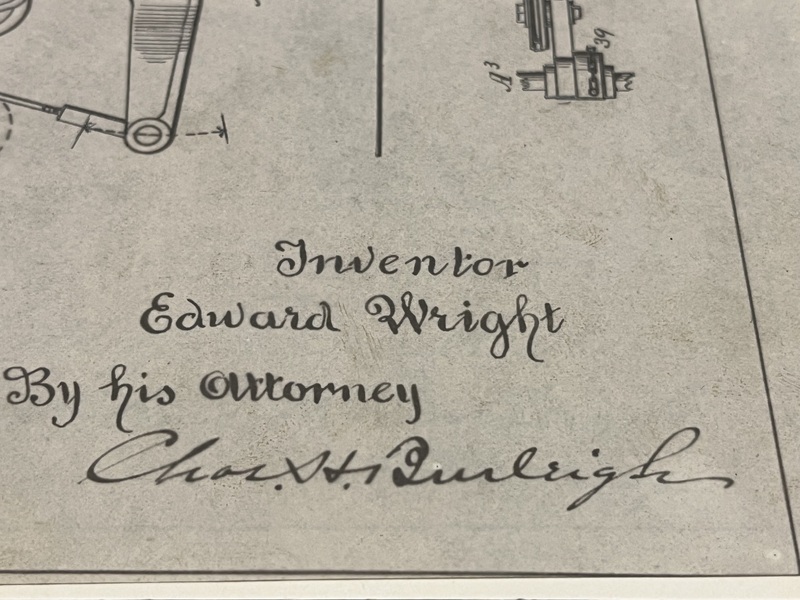 A³
39
Inventor
Edward Wright
By his Attorney
Chas. H. Burleigh